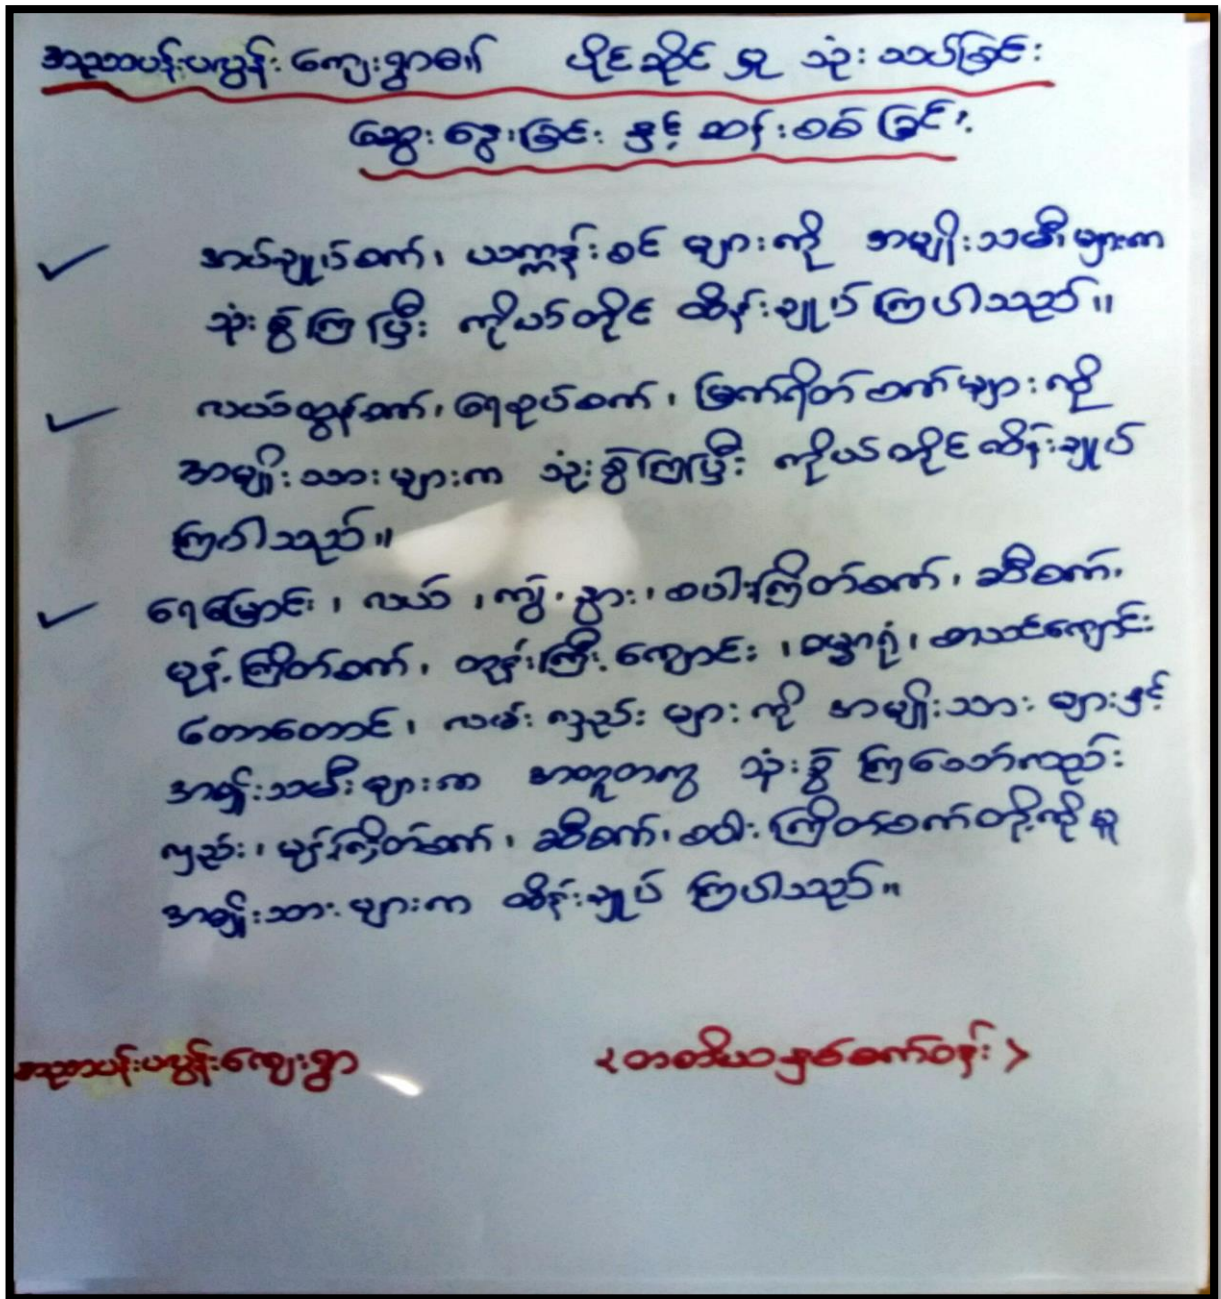 အညာပန်းပလွန်း ကျေးရွာ၏ ပိုင်ဆိုင်မှု သုံးသပ်ခြင်း
ဆွေးနွေးခြင်း နှင့် ဆန်းစစ်ခြင်း
အပ်ချုပ်စက်၊ ယက္ကန်းစင် များကို အမျိုးသမီးများက
သုံးစွဲကြပြီး ကိုယ်တိုင် ထိန်းချုပ်ကြပါသည်။
လယ်ထွန်စက်၊ ရေစုပ်စက်၊ မြက်ရိတ်စက်များကို
အမျိုးသားများက သုံးစွဲကြပြီး ကိုယ်တိုင်ထိန်းချုပ်
ကြပါသည်။
ရေမြောင်း၊ လယ်၊ ကျွဲ၊ နွား၊ စပါးကြိတ်စက်၊ ဆီစက်၊
မုန့်ကြိတ်စက်၊ ဘုန်းကြီးကျောင်း၊ ဓမ္မာရုံ၊ စာသင်ကျောင်း
တောတောင်၊ လမ်းလှည်းများကို အမျိုးသားများနှင့်
အမျိုးသမီးများက အတူတကွ သုံးစွဲကြသော်လည်း
လှည်း၊ မုန့်ကြိတ်စက်၊ ဆီစက်၊ စပါးကြိတ်စက်တို့ကိုမူ
အမျိုးသားများက ထိန်းချုပ်ကြပါသည်။
အညာပန်းပလွန်းကျေးရွာ <တတိယနှစ်စက်ဝန်း>